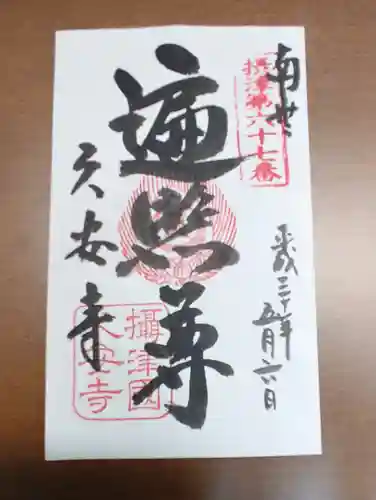 南無
摂津第六十七番
遍照尊
久安寺
攝津國
久安寺
平成三十年
五月六日